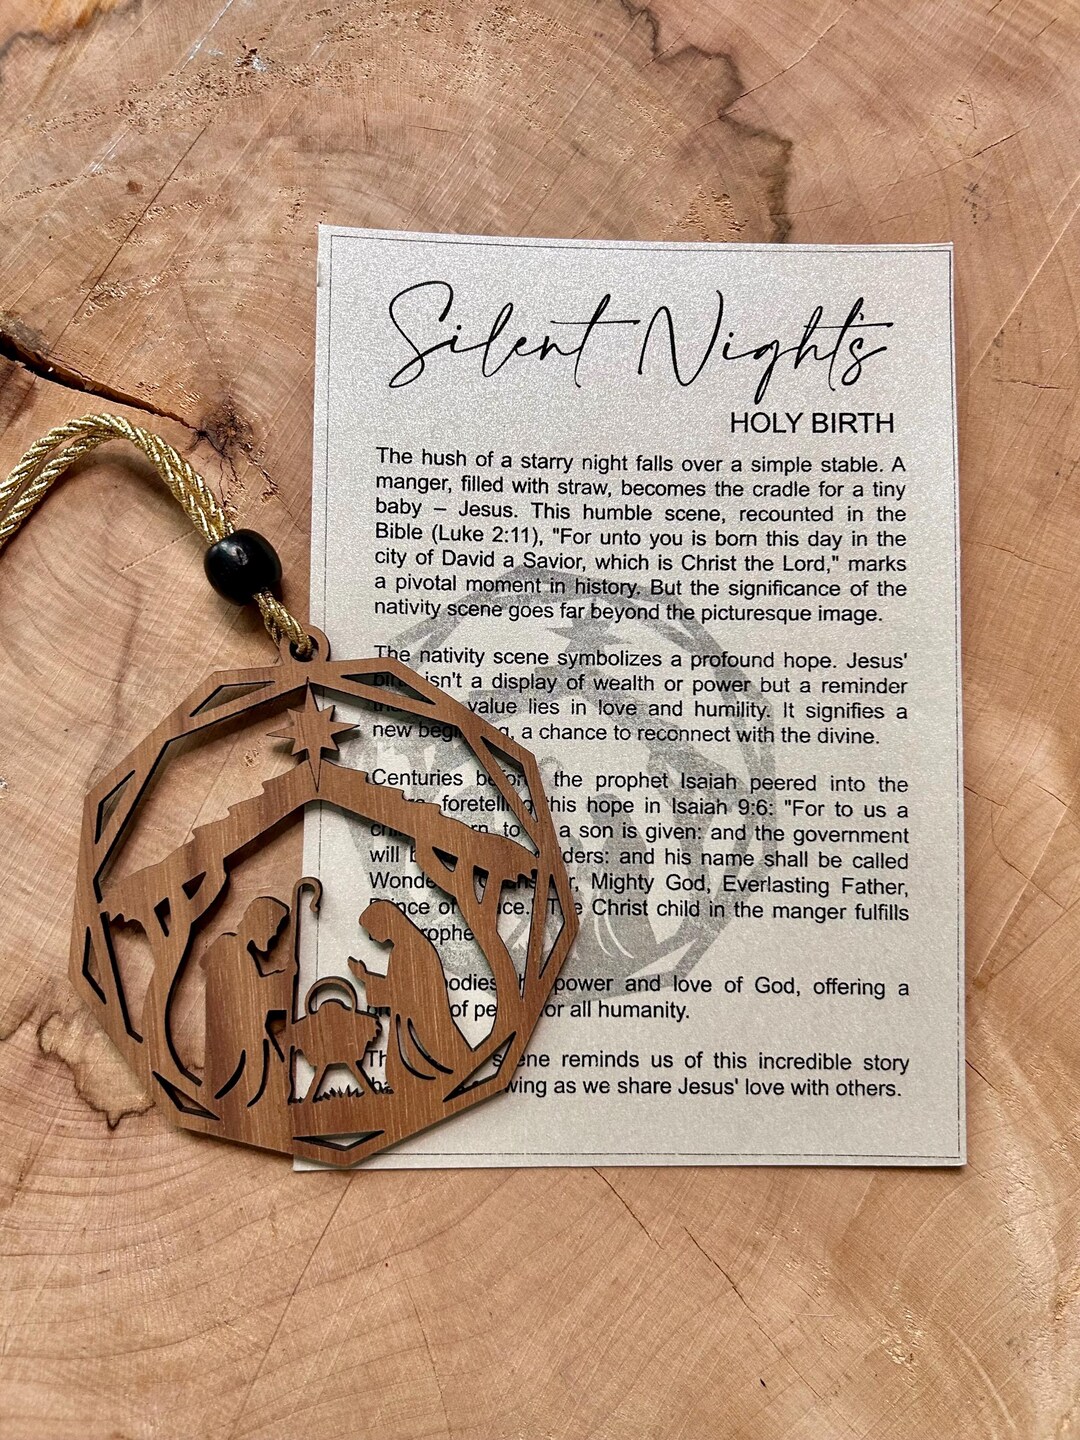 Silent Night's
HOLY BIRTH
The hush of a starry night falls over a simple stable. A
manger, filled with straw, becomes the cradle for a tiny
baby – Jesus. This humble scene, recounted in the
Bible (Luke 2:11), "For unto you is born this day in the
city of David a Savior, which is Christ the Lord," marks
a pivotal moment in history. But the significance of the
nativity scene goes far beyond the picturesque image.
The nativity scene symbolizes a profound hope. Jesus'
birth isn't a display of wealth or power but a reminder
value lies in love and humility. It signifies a
new a chance to reconnect with the divine.
Centuries before, the prophet Isaiah peered into the
foretelling this hope in Isaiah 9:6: "For to us a
to a son is given: and the government
will and his name shall be called
Mighty God, Everlasting Father,
Prince of The Christ child in the manger fulfills
power and love of God, offering a
of for all humanity.
reminds us of this incredible story
as we share Jesus' love with others.